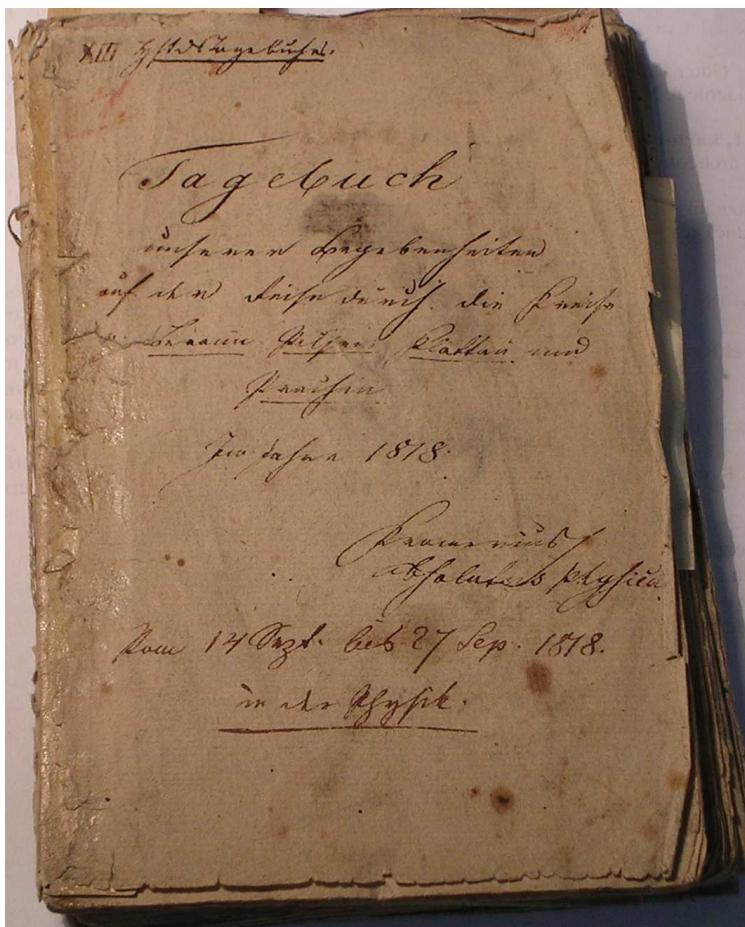 XIII Hft ds Tagebuches.
Tagebuch
unserer Begebenheiten
auf der Reise durch die Kreise
Beraun Pilsen Klattau und
Prachin
Im Jahre 1818.
absolutus Physica
Vom 14 Sept. bis 27 Sep. 1818.
in der Physik.